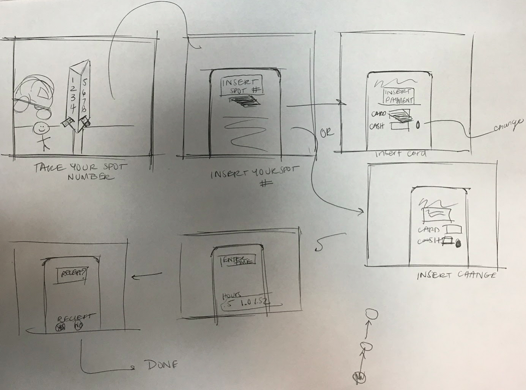 1 5
2 6
3 7
4 8
TAKE YOUR SPOT
NUMBER
INSERT
SPOT #
INSERT YOUR SPOT
#
OR
INSERT
PAYMENT
CARD
CASH
insert card
change
CARD
CASH
INSERT CHANGE
ENTER
HOURS
RECEIPT
DONE